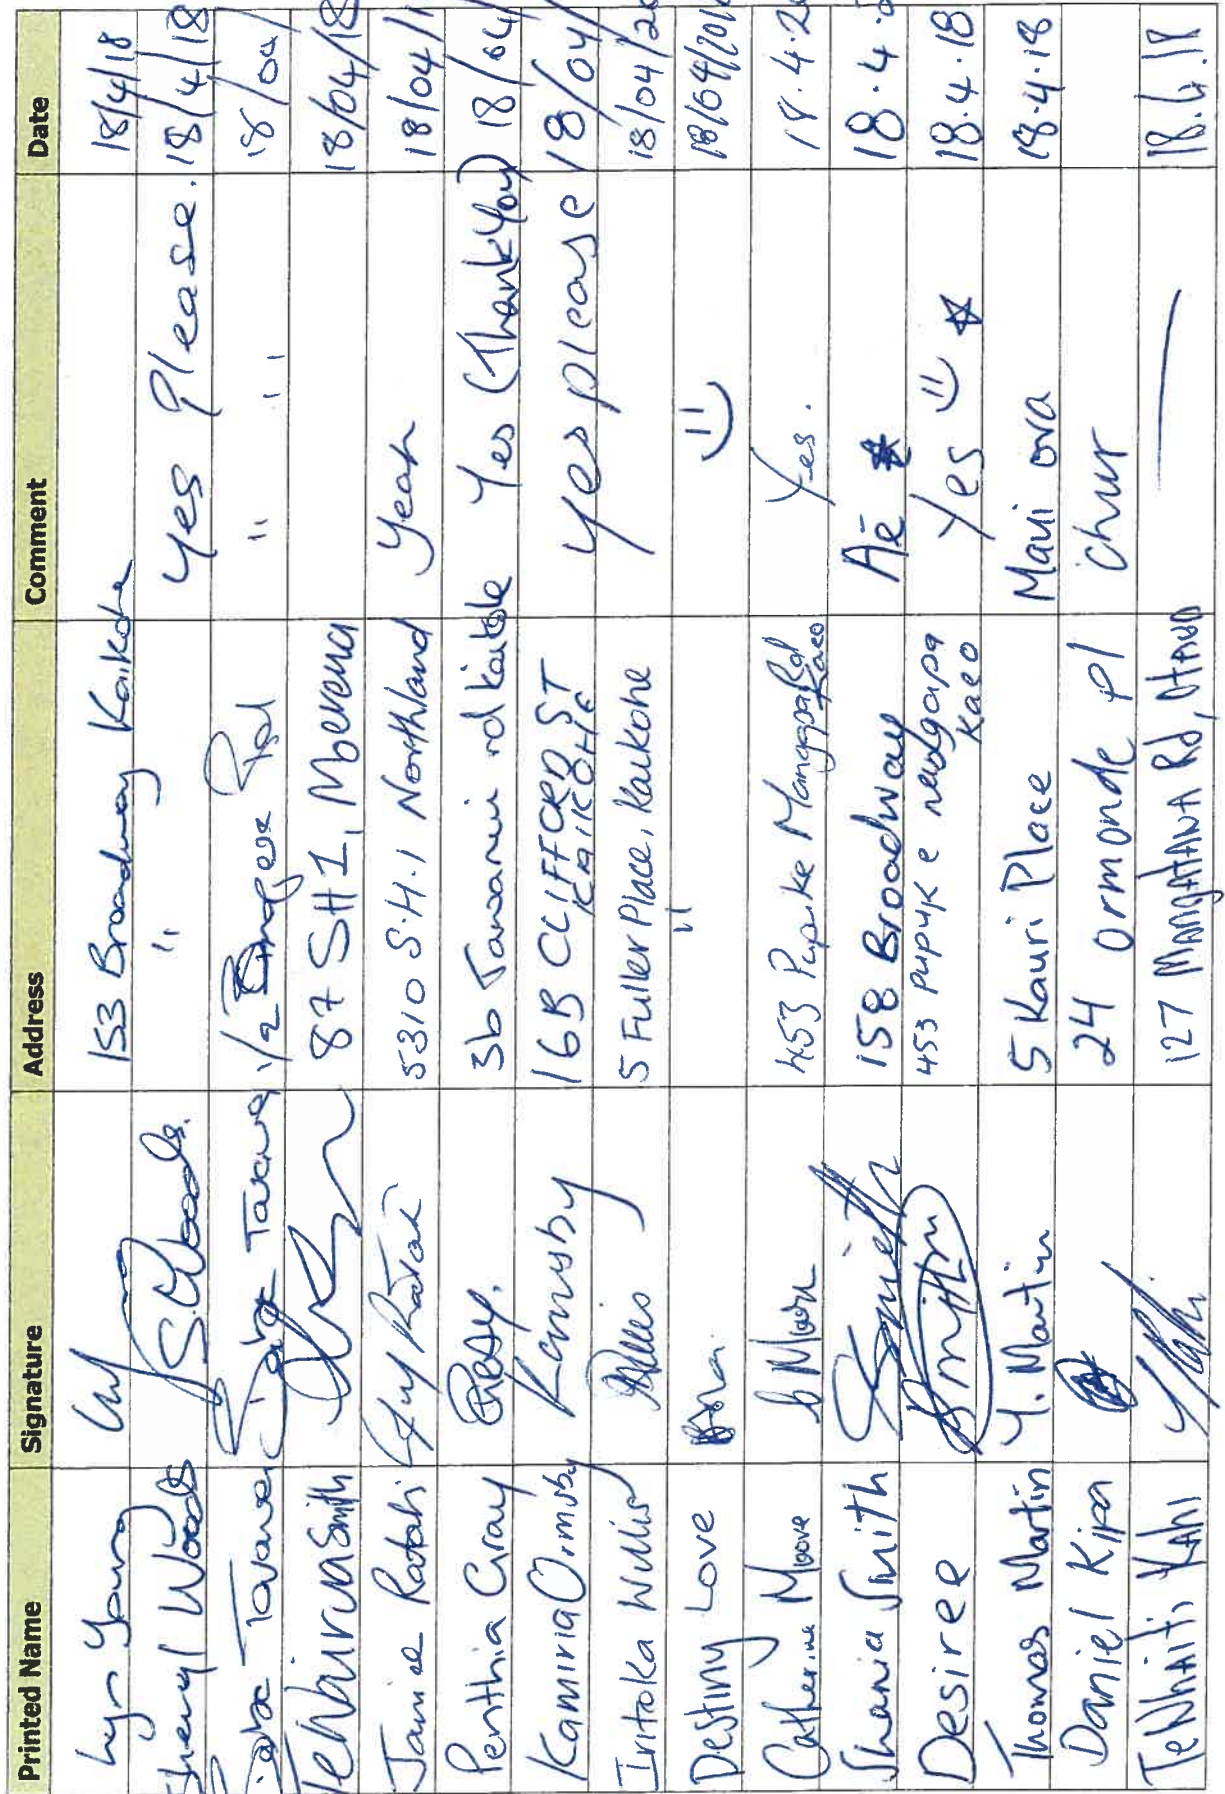 Printed Name Signature Address Comment Date
Lyn Young 153 Broadway Kaikohe 18/4/18
Sheryl Woods S.Woods. " Yes Please. 18/4/18
Tawara Tawara 1/2 Rd " " 18/04/
Smith 87 SH1, Moerewa 18/04/18
Janice Ratahi 5310 S.H.1 Northland Yeah 18/04/1
Penthia Gray 36 Tawanui rd Kaikohe Yes (Thank You) 18/04/
Kamiria Ormsby Kormsby 16B CLIFFORD ST KAIKOHE Yes please 18/04/
Iritoka Willis 5 Fuller Place, Kaikohe 18/04/20
Destiny Love " 18/04/201
Catherine Moore 453 Pupuke Mangapa Rd Kaeo Yes. 18.4.20
Shania Smith Smith 158 Broadway Āe 18.4.
Desiree 453 pupuke Kaeo Yes 18.4.18
Thomas Martin Y. Martin 5 Kauri Place Mauri ora 18.4.18
Daniel Kipa 24 Ormonde pl Chur
TeWhaiti Kahi 127 Mangatawa Rd, Otaua 18.4.18